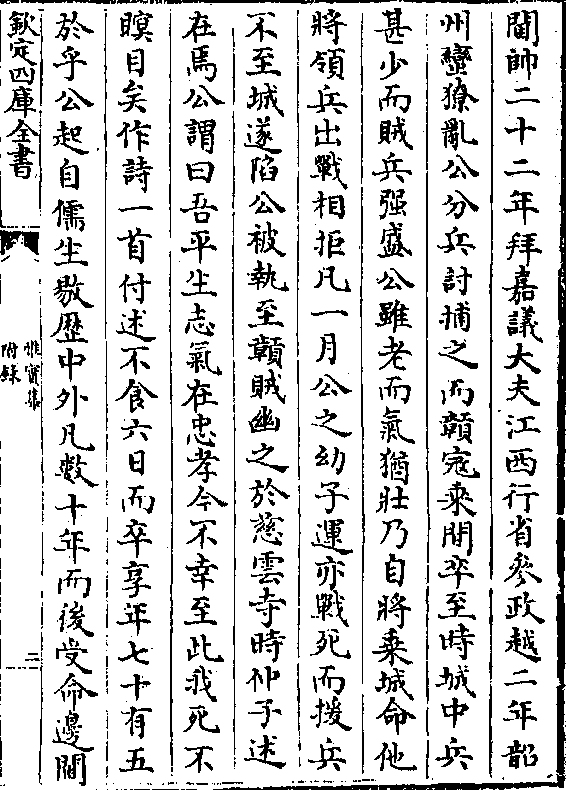 閫帥二十二年拜嘉議大夫江西行省參政越二年韶
州蠻獠亂公分兵討捕之而贛寇乘間卒至時城中兵
甚少而賊兵强盛公雖老而氣猶壯乃自將乘城命他
將領兵出戰相拒凡一月公之幼子運亦戰死而援兵
不至城遂陷公被執至贛賊幽之於慈雲寺時仲子述
在焉公謂曰吾平生志氣在忠孝今不幸至此我死不
瞑目矣作詩一首付述不食六日而卒享年七十有五
於乎公起自儒生敭歴中外凡數十年而後受命邊閫
欽定四庫全書
惟實集
附錄
二